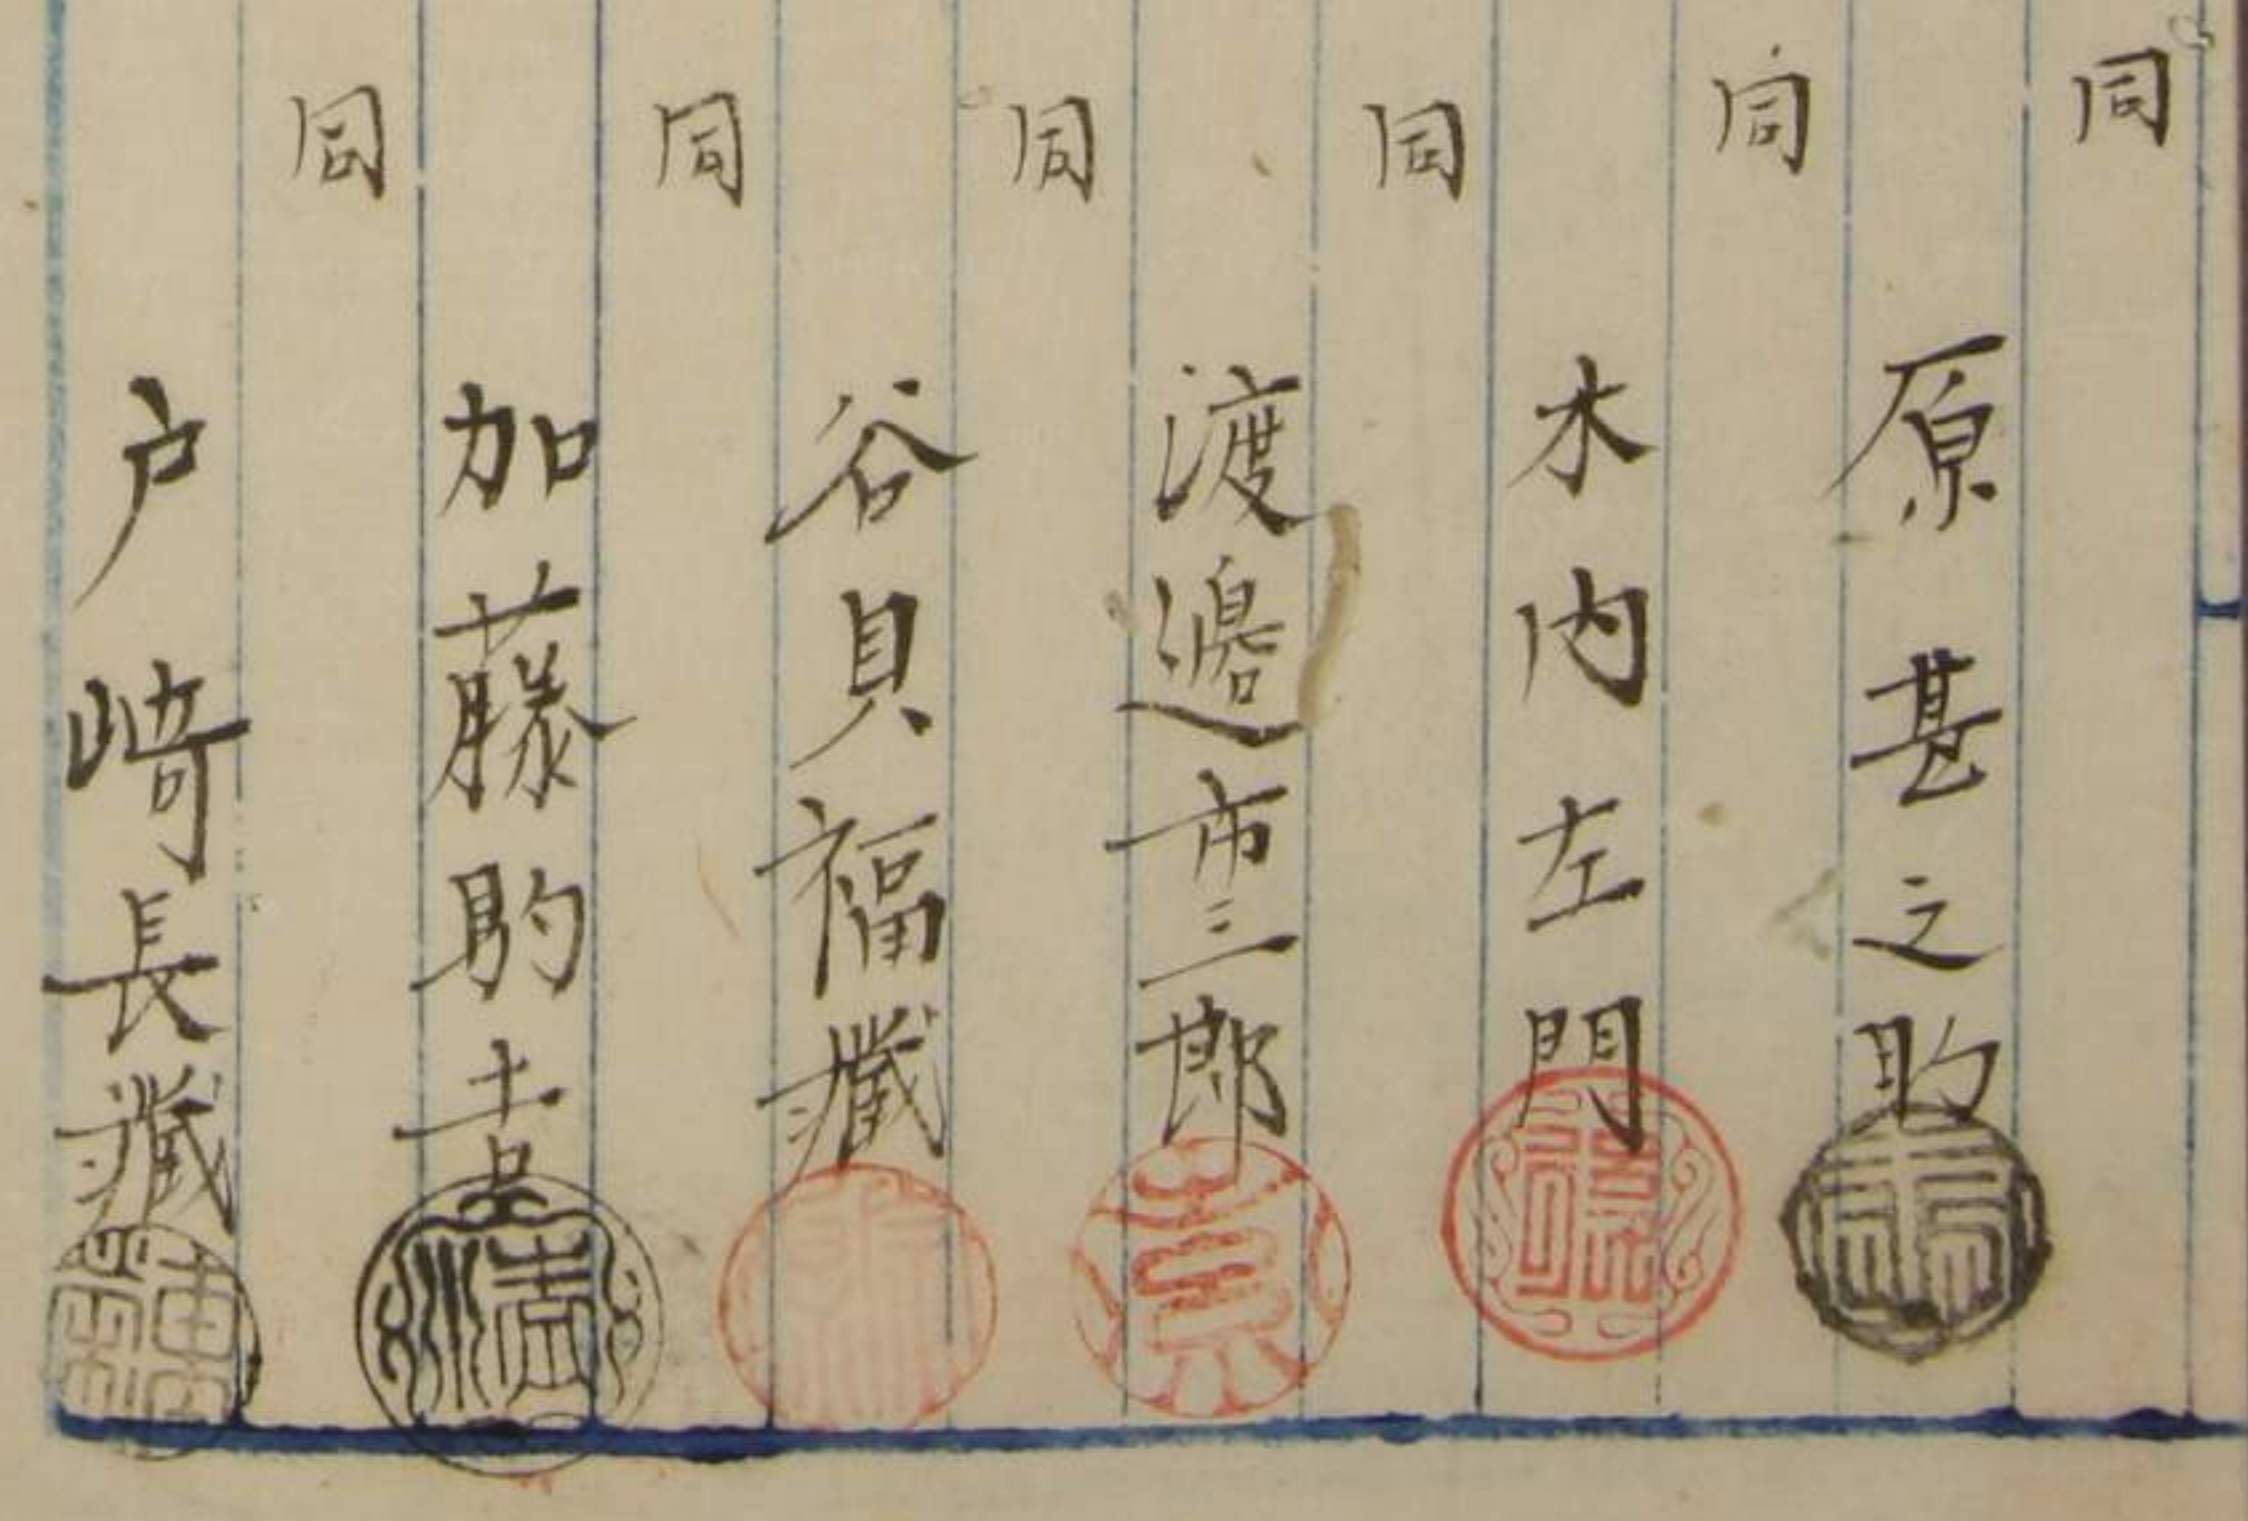 同
原甚之助
同
木内左門
同
渡邉市三郎
同
谷貝福蔵
同
加藤助吉
同
戸﨑長蔵